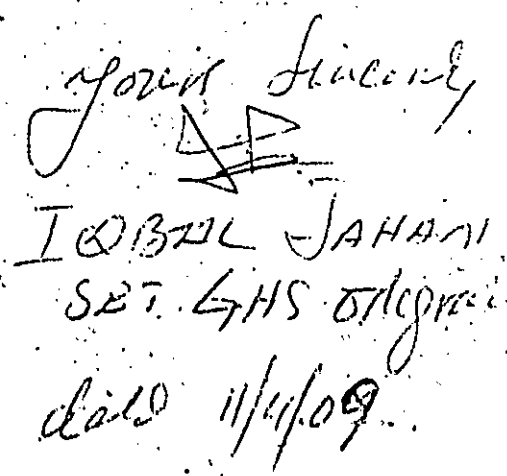 Yours Sincerely
IQBAL JAHAN
SET. GHS
date 11/4/09